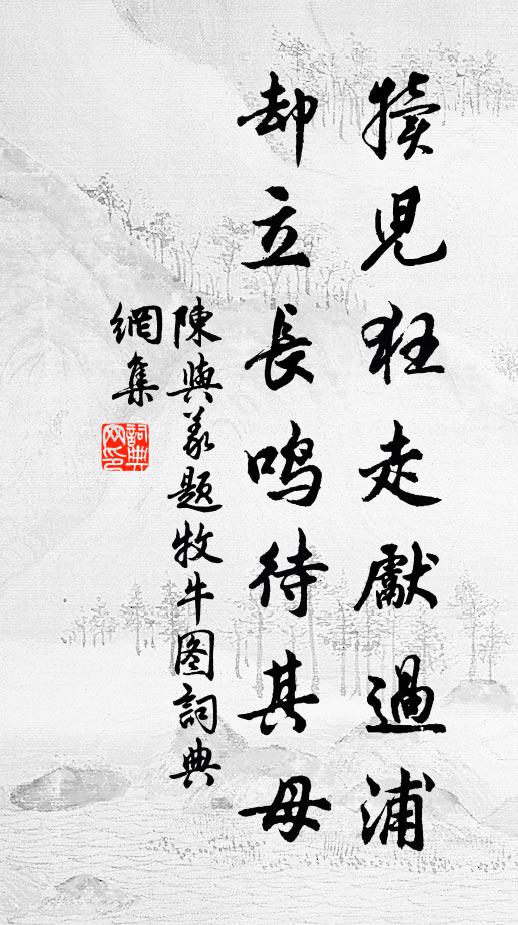 犢兒狂走獻過浦
却立長鳴待其母
陳與義題牧牛图詞典
網集
詞典
网印